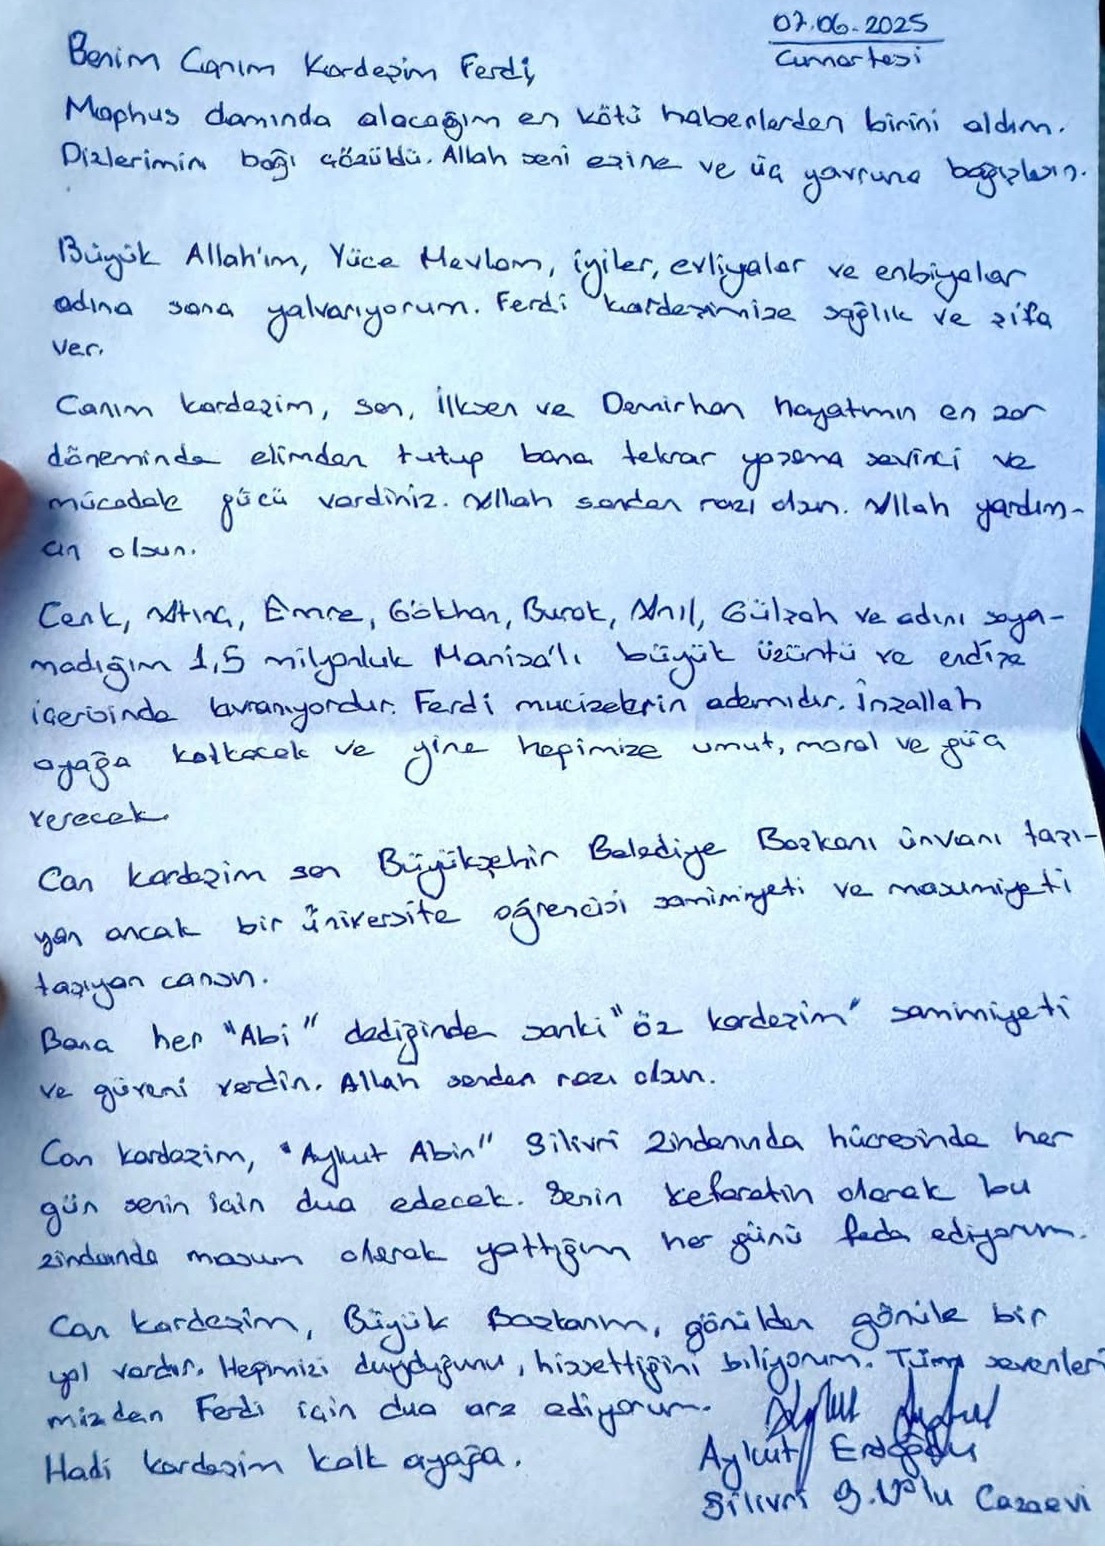 07.06.2025
Cumartesi
Benim Canım Kardeşim Ferdi,
Maphus damında alacağım en kötü haberlerden birini aldım.
Dizlerimin bağı çözüldü. Allah seni eşine ve üç yavruna bağışlasın.
Büyük Allah'ım, Yüce Mevlam, iyiler, evliyalar ve enbiyalar
adına sana yalvarıyorum. Ferdi kardeşimize sağlık ve şifa
ver.
Canım kardeşim, sen, İlksen ve Demirhan hayatımın en zor
döneminde elimden tutup bana tekrar yaşama sevinci ve
mücadele gücü verdiniz. Allah senden razı olsun. Allah yardım-
cın olsun.
Cenk, Emre, Gökhan, Burak, Anıl, Gülşah ve adını saya-
madığım 1,5 milyonluk Manisa'lı büyük üzüntü ve endişe
içerisinde kıvranıyordur. Ferdi mucizelerin adamıdır. İnşallah
ayağa kalkacak ve yine hepimize umut, moral ve güç
verecek.
Can kardeşim sen Büyükşehir Belediye Başkanı ünvanı taşı-
yan ancak bir üniversite öğrencisi samimiyeti ve masumiyeti
taşıyan cansın.
Bana her "Abi" dediğinde sanki "öz kardeşim" samimiyeti
ve güveni verdin. Allah senden razı olsun.
Can kardeşim, "Aykut Abin" Silivri zindanında hücresinde her
gün senin için dua edecek. Senin kefaretin olarak bu
zindanda masum olarak yattığım her günü feda ediyorum.
Can kardeşim, Büyük Başkanım, gönülden gönüle bir
yol vardır. Hepimizi duyduğunu, hissettiğini biliyorum. Tüm sevenleri
mizden Ferdi için dua arz ediyorum.
Hadi kardeşim kalk ayağa.
Aykut Erdoğdu
Silivri 9. Nolu Cezaevi